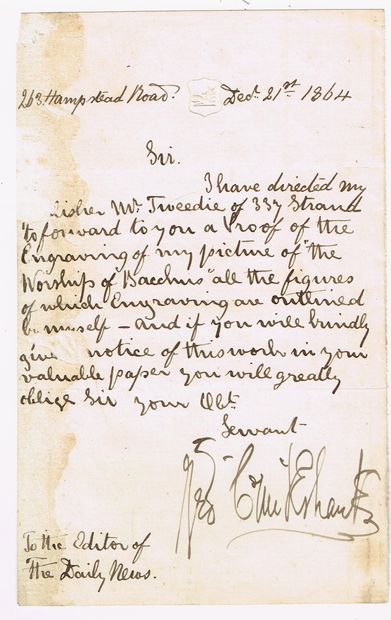 263 Hampstead Road. Decr. 21st 1864
Sir.
I have directed my
lisher Mr. Tweedie of 337 Strand
to forward to you a Proof of the
Engraving of my picture of "the
Worship of Bacchus" all the figures
of which Engraving are outlined
by myself – and if you will kindly
give notice of this work in your
valuable paper you will greatly
oblige Sir your Obt.
Servant
Geo Cruikshank
To the Editor of
"the Daily News.